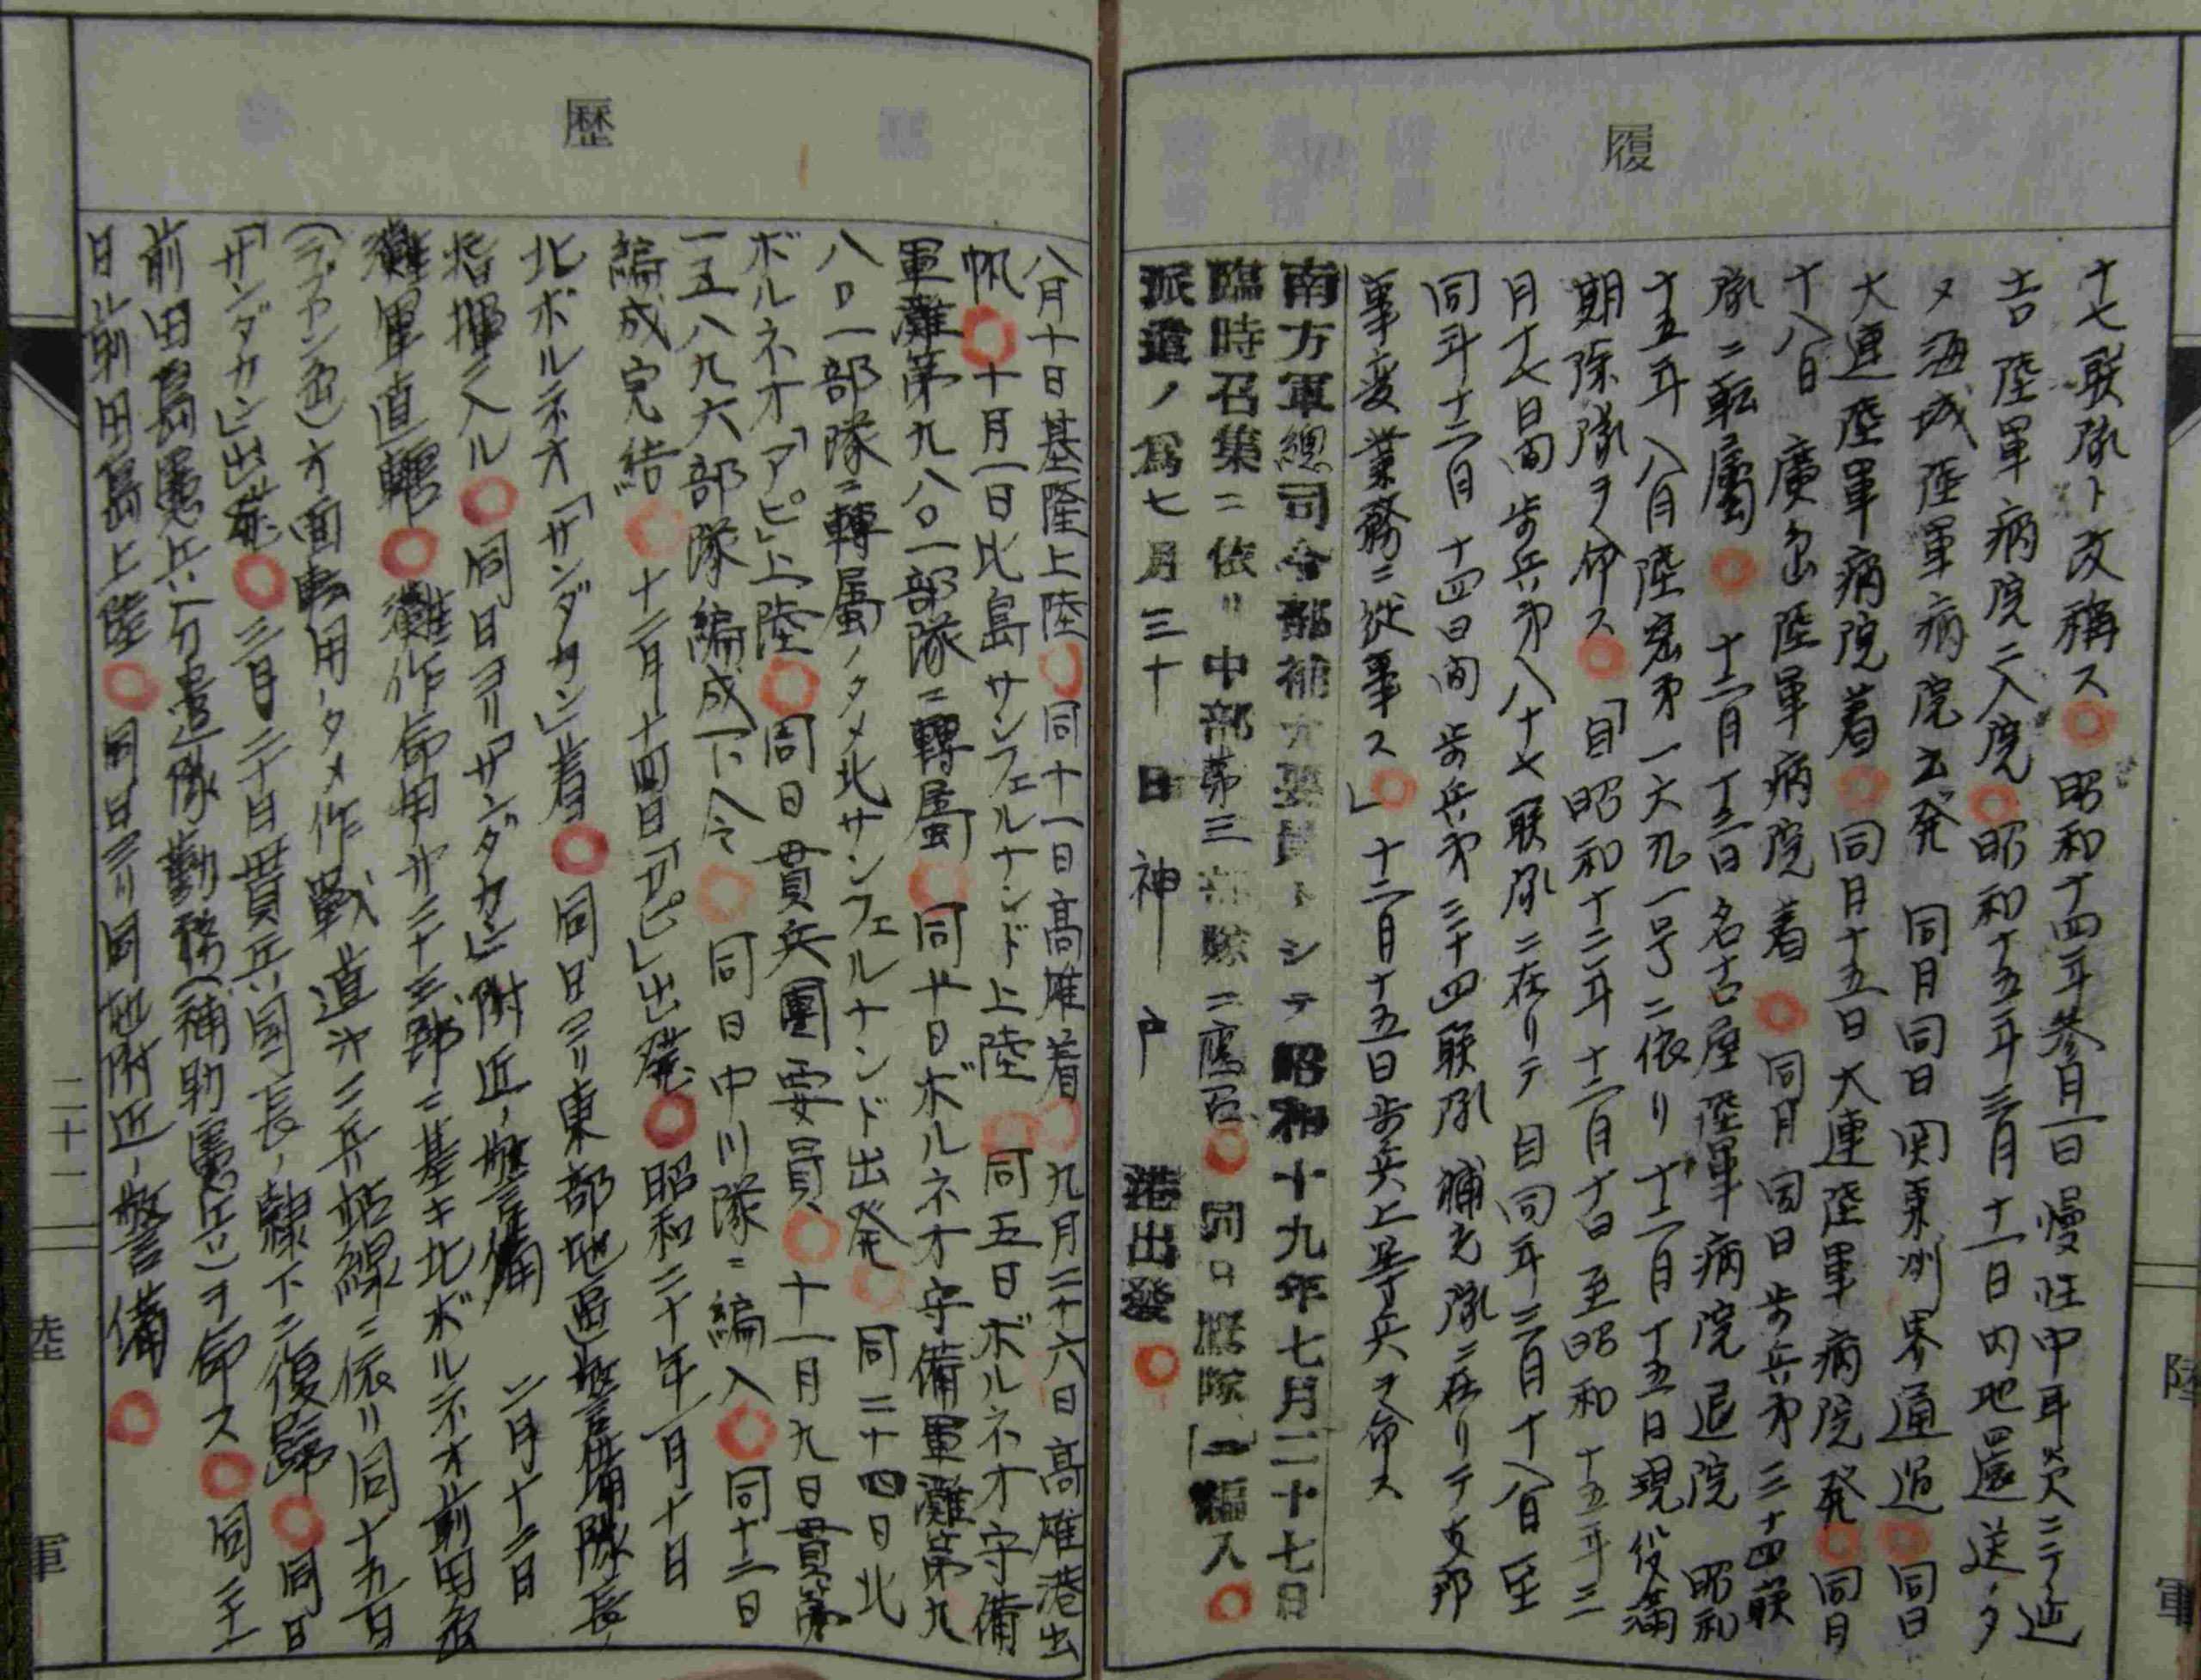 履
十七联隊ト改稱ス 昭和十四年参月一日慢性中耳炎ニテ遼
吉陸軍病院ニ入院 昭和十五年三月十一日内地還送ノタ
メ海城陸軍病院出発 同月同日関東州界通過 同日
大連陸軍病院着 同月十五日大連陸軍病院発 同月
十八日 廣島陸軍病院着 同月同日歩兵第三十四联
隊ニ転屬 十二月十三日名古屋陸軍病院退院 昭和
十五年八月陸密第一六九一号ニ依リ十二月十五日現役満
期除隊ヲ命ス 「自昭和十二年十二月十日至昭和十五年三
月十七日間歩兵第八十七联隊ニ在リテ自同年三月十八日至
同年十二月十四日間歩兵第三十四联隊補充隊ニ在リテ支那
事変業務ニ従事ス」 十二月十五日歩兵上等兵ヲ命ス
南方軍總司令部補充要員トシテ昭和十九年七月二十七日
臨時召集ニ依リ中部第三部隊ニ應召 同日應隊ニ編入
派遣ノ爲七月三十日神戸港出發
陸軍
歴
八月十日基隆上陸 同十一日高雄着 九月二十六日高雄港出
帆 十月一日比島サンフェルナンド上陸 同五日ボルネオ守備
軍灘第九八〇一部隊ニ轉屬 同十日ボルネオ守備軍灘第九
八〇一部隊ニ轉屬ノタメ北サンフェルナンド出発 同二十四日北
ボルネオ「アピ」上陸 同日貫兵團要員 十一月九日貫第
一五八九六部隊編成下令 同日中川隊ニ編入 同十二日
編成完結 十二月十四日「アピ」出発 昭和二十年一月十日
北ボルネオ「サンダカン」着 同日ヨリ東部地區警備隊長ノ
指揮ニ入ル 同日ヨリ「サンダカン」附近ノ警備 二月十三日
灘軍直轄 灘作命甲第二十三号ニ基キ北ボルネオ前田島
(ラブアン島)方面転用ノタメ作戰道第二兵站線ニ依リ同十五日
「サンダカン」出發 三月二十日貫兵團長ノ隷下ニ復歸 同日
前田島憲兵分遣隊勤務(補助憲兵)ヲ命ス 同二十一
日前田島上陸 同日ヨリ同地附近ノ警備
二十一
陸軍